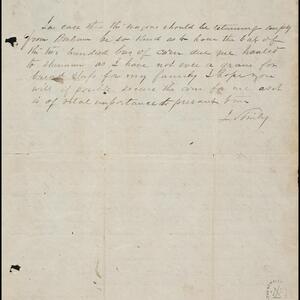 In case that the wagons should be returning empty
from            be so kind as to have the bal of
the two hundred   of corn due me hauled
to           as I have not even a grain for
bread    for my family I hope you
will if possible secure the corn for me as it
is of vital importance to present